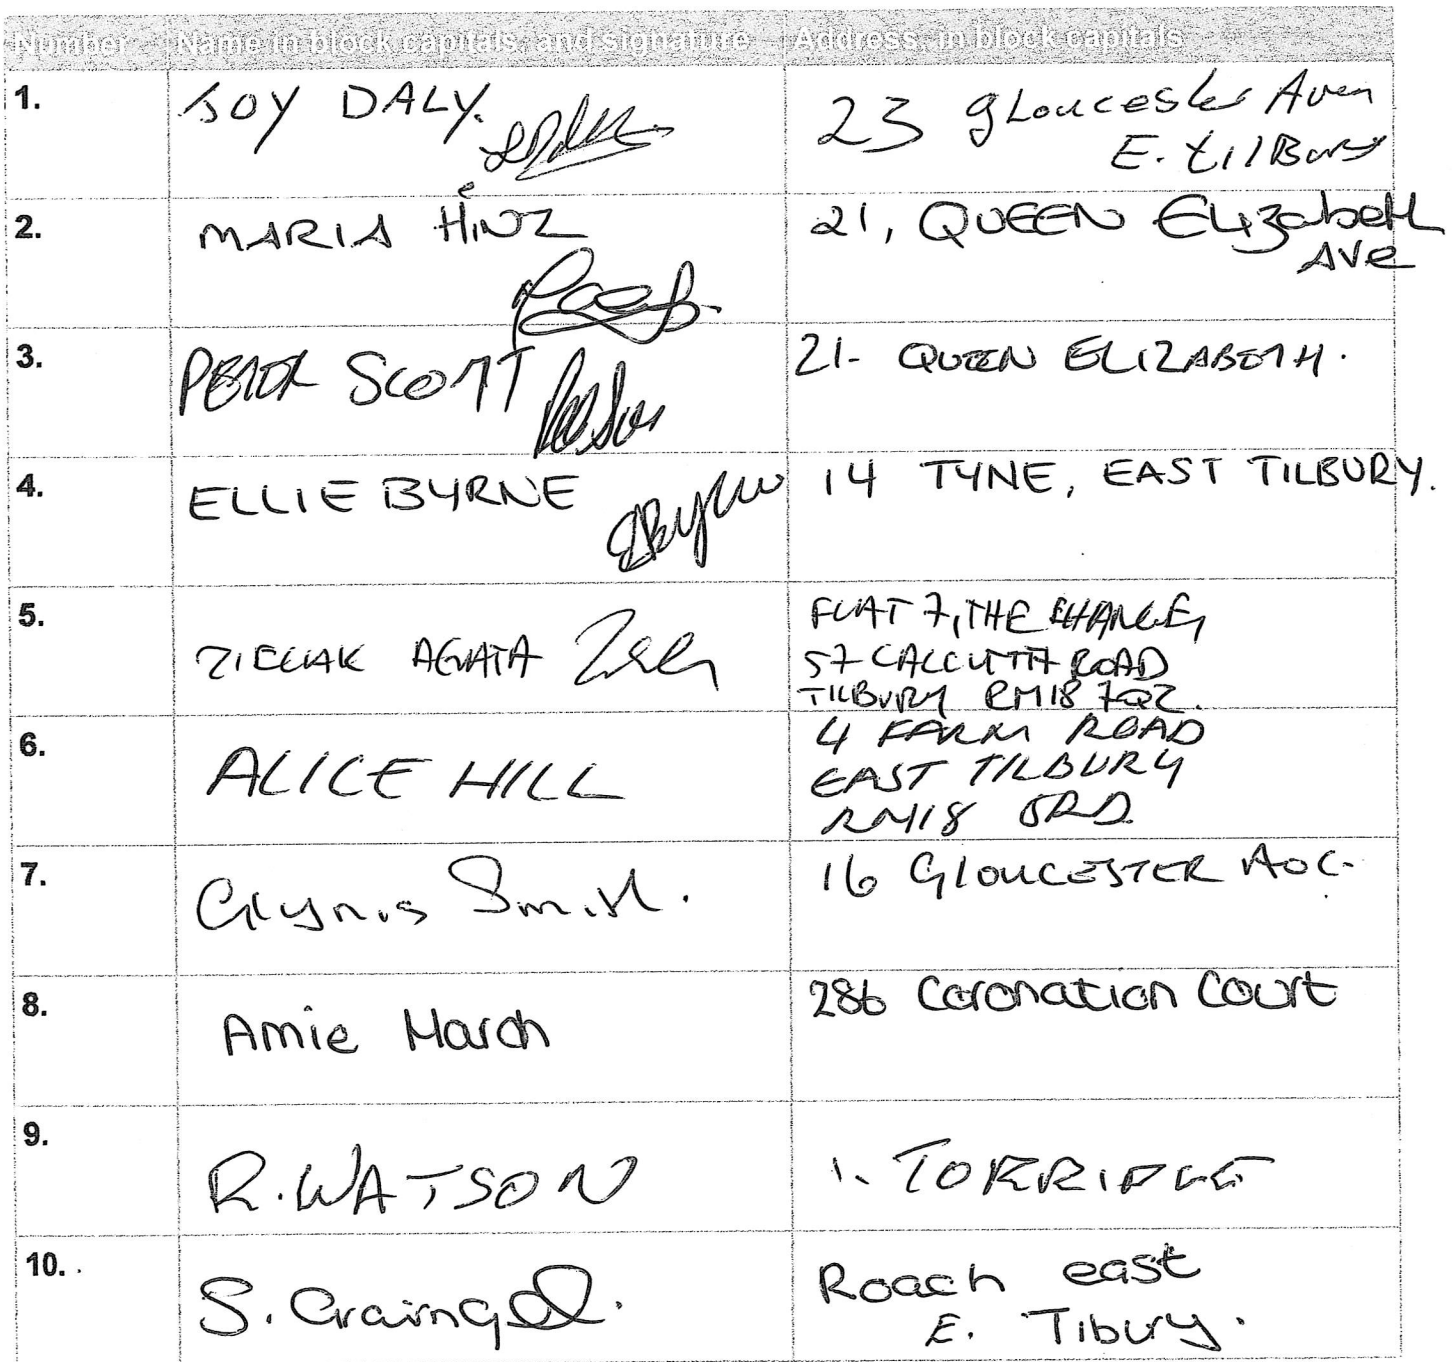 Number Name in block capitals, and signature Address, in block capitals
1. JOY DALY. 23 gLoucester Aven
E. tilBury
2. MARIA HINZ 21, QUEEN Elizabeth
AVe
3. PETER SCOTT 21- QUEEN ELIZABETH.
4. ELLIE BYRNE 14 TYNE, EAST TILBURY.
5. ZIELIAK AGATA FLAT 7, THE EHANGE,
57 CALCUTTA ROAD
TILBURY RM18 7QZ.
6. ALICE HILL 4 FARM ROAD
EAST TILBURY
RM18 0RD
7. Glynis Smith. 16 GLOUCESTER
8. Amie March 286 Coronation Court
9. R. WATSON 1. TORRIDGE
10. S. Roach east
E. Tibury.